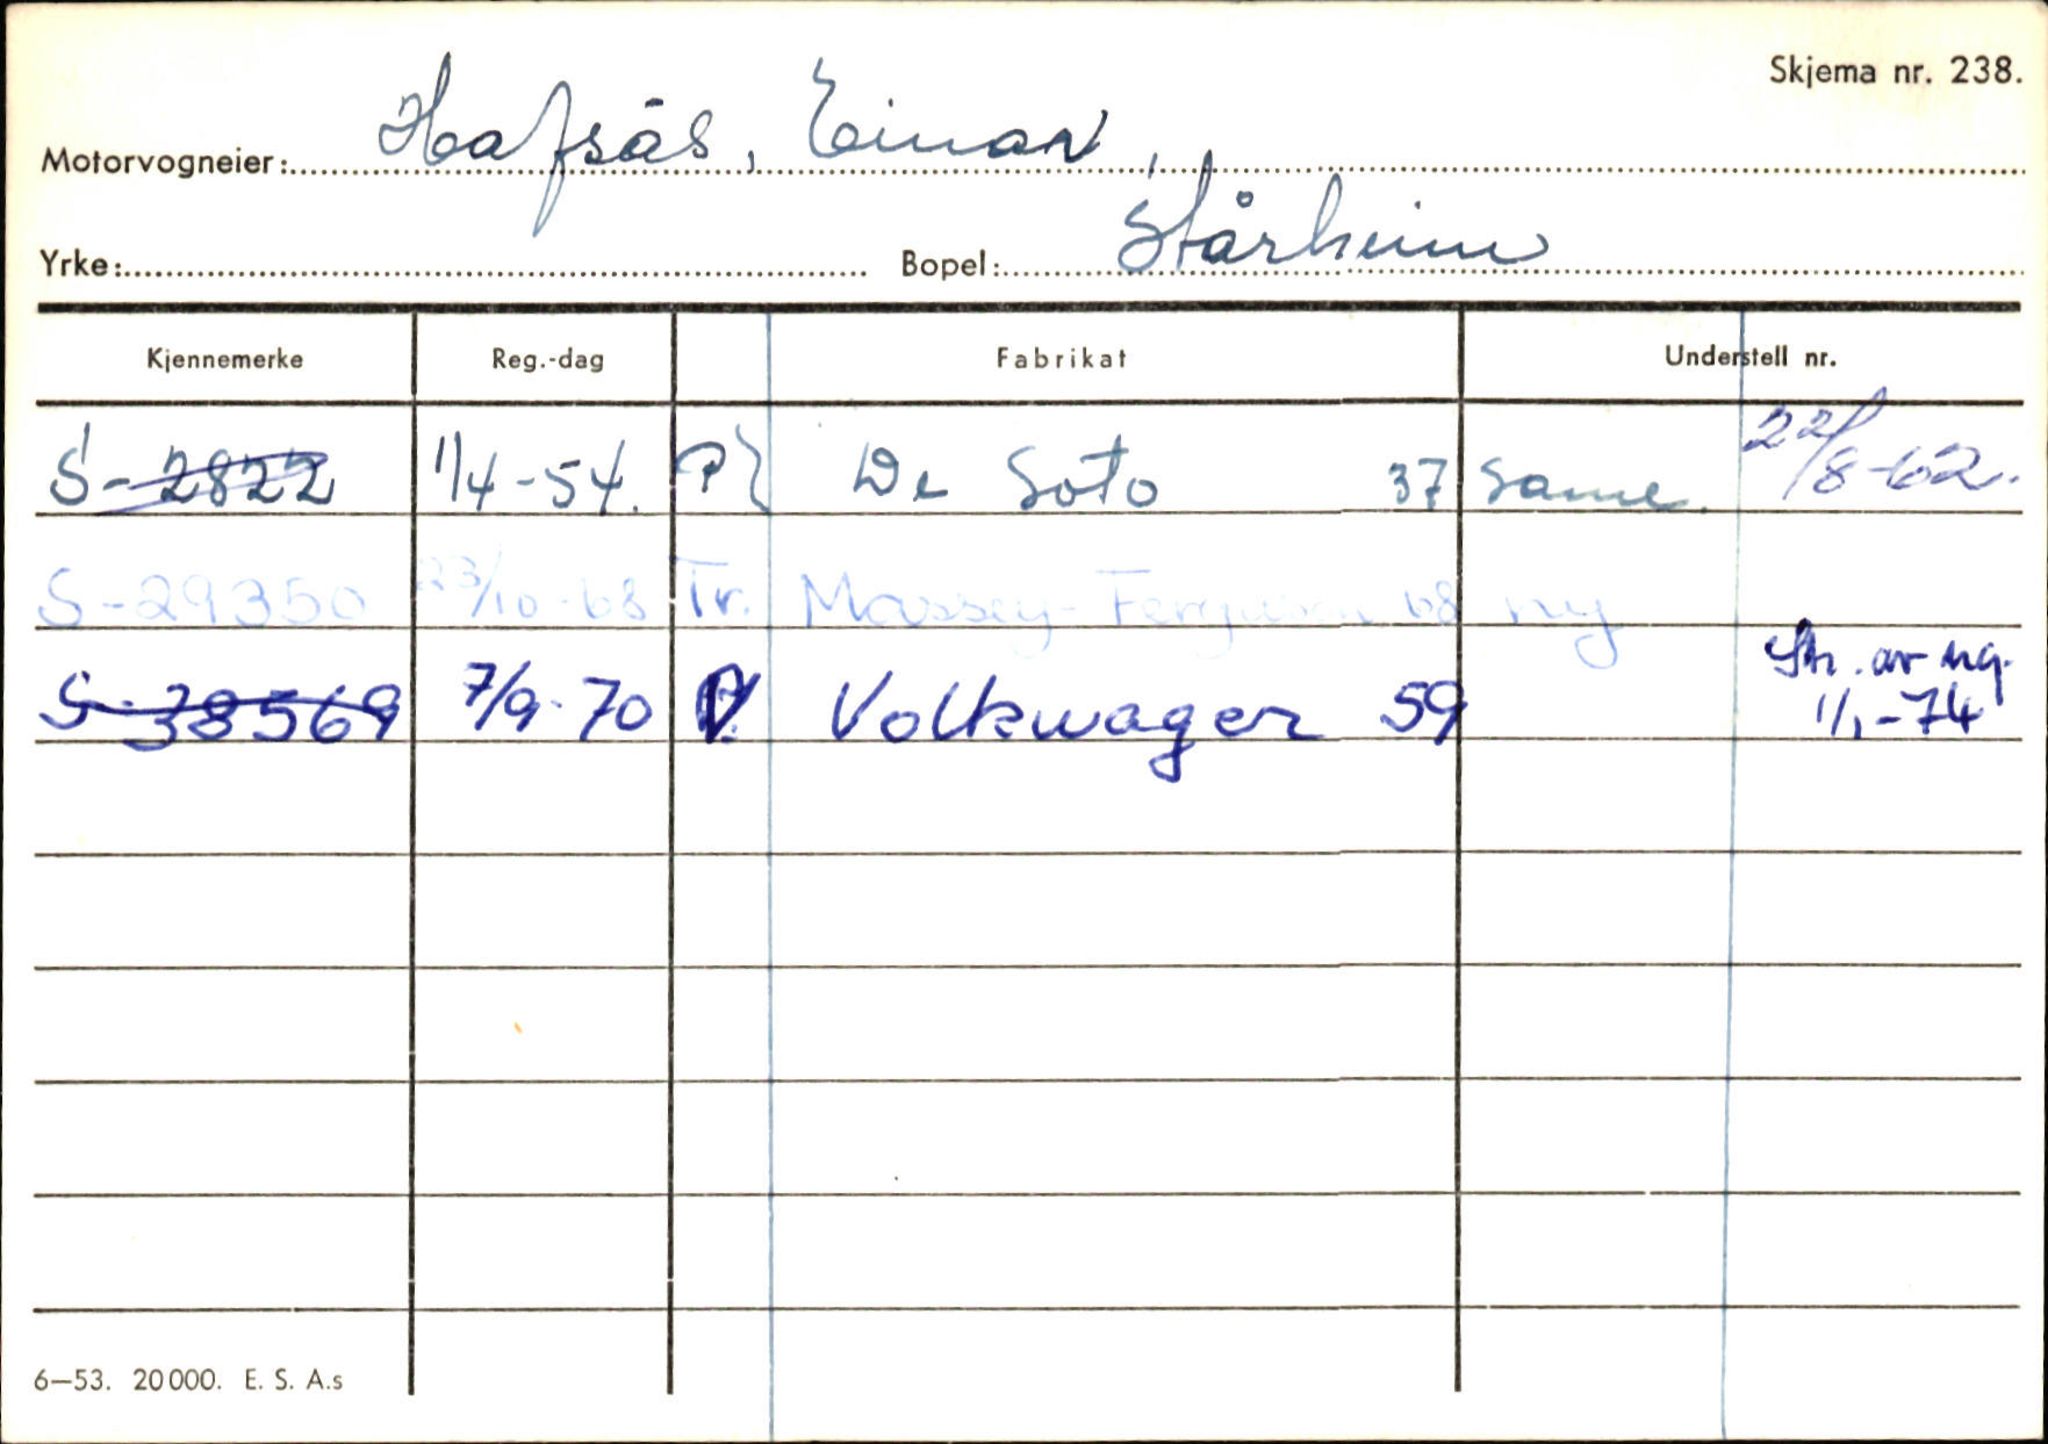 Skjema nr. 238.
Motorvogneier: Hafsås, Einar,
Yrke: Bopel: Stårheim
Kjennemerke Reg.-dag Fabrikat Understell nr.
S-2822 1/4-54. P De Soto 37 Same. 22/8-62.
S-29350 23/10-68 Tr. Massey-Ferguson 68 ny
Str. av reg.
S-38569 7/9-70 P. Volkwagen 59 1/1-74
6—53. 20000. E. S. A.s